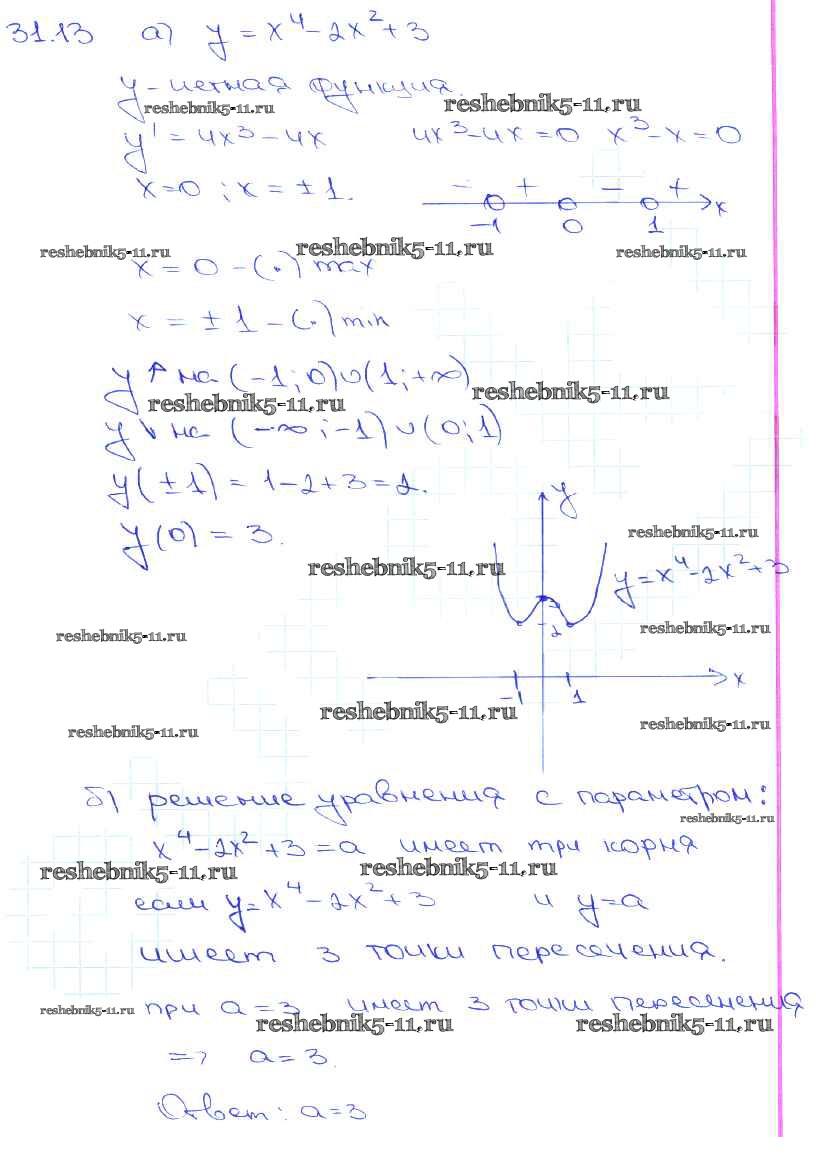 31.13 а) y = x⁴ - 2x² + 3
y - четная функция.
reshebnik5-11.ru reshebnik5-11.ru
y' = 4x³ - 4x 4x³ - 4x = 0 x³ - x = 0
x = 0 ; x = ± 1. - + - + x
-1 0 1
reshebnik5-11.ru reshebnik5-11.ru reshebnik5-11.ru
x = 0 - (.) max
x = ± 1 - (.) min
y ↑ на (-1; 0) ∪ (1; +∞)
reshebnik5-11.ru reshebnik5-11.ru
y ↓ на (-∞; -1) ∪ (0; 1)
y(±1) = 1 - 2 + 3 = 2.
y
y(0) = 3.
reshebnik5-11.ru
reshebnik5-11.ru
y = x⁴ - 2x² + 3
3
2
reshebnik5-11.ru reshebnik5-11.ru
x
-1 1
reshebnik5-11.ru
reshebnik5-11.ru reshebnik5-11.ru
б) решение уравнения с параметром:
reshebnik5-11.ru
x⁴ - 2x² + 3 = a имеет три корня
reshebnik5-11.ru reshebnik5-11.ru
если y = x⁴ - 2x² + 3 и y = a
имеет 3 точки пересечения.
reshebnik5-11.ru при a = 3 имеет 3 точки пересечения
reshebnik5-11.ru reshebnik5-11.ru
=> a = 3.
Ответ: a = 3